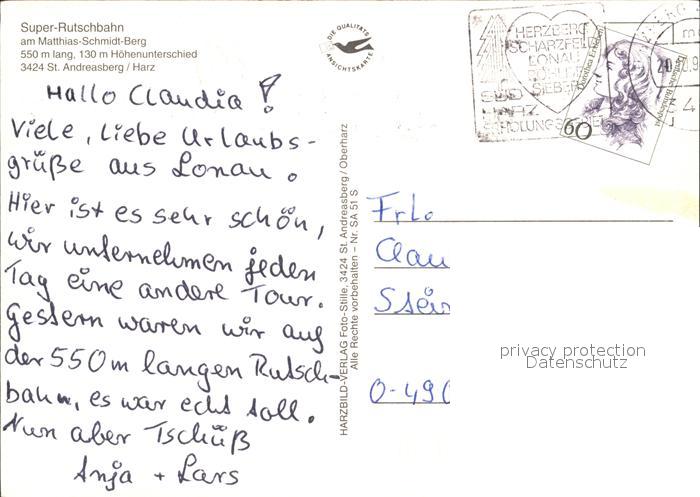 Super-Rutschbahn
am Matthias-Schmidt-Berg
550 m lang, 130 m Höhenunterschied
3424 St. Andreasberg / Harz
Hallo Claudia!
Viele, liebe Urlaubs-
grüße aus Lonau.
Hier ist es sehr schön,
wir unternehmen jeden
Tag eine andere Tour.
Gestern waren wir auf
der 550m langen Rutsch-
bahn, es war echt toll.
Nun aber Tschüß
Anja + Lars
DIE QUALITÄTS
ANSICHTSKARTE
HARZBILD-VERLAG Foto-Stille, 3424 St. Andreasberg / Oberharz
Alle Rechte vorbehalten – Nr. SA 51 S
HERZBERG
SCHARZFELD
LONAU
SIEBER
SÜD
HARZ
60
Deutsche Bundespost
Frl.
Clau
Stein
O-490
privacy protection
Datenschutz